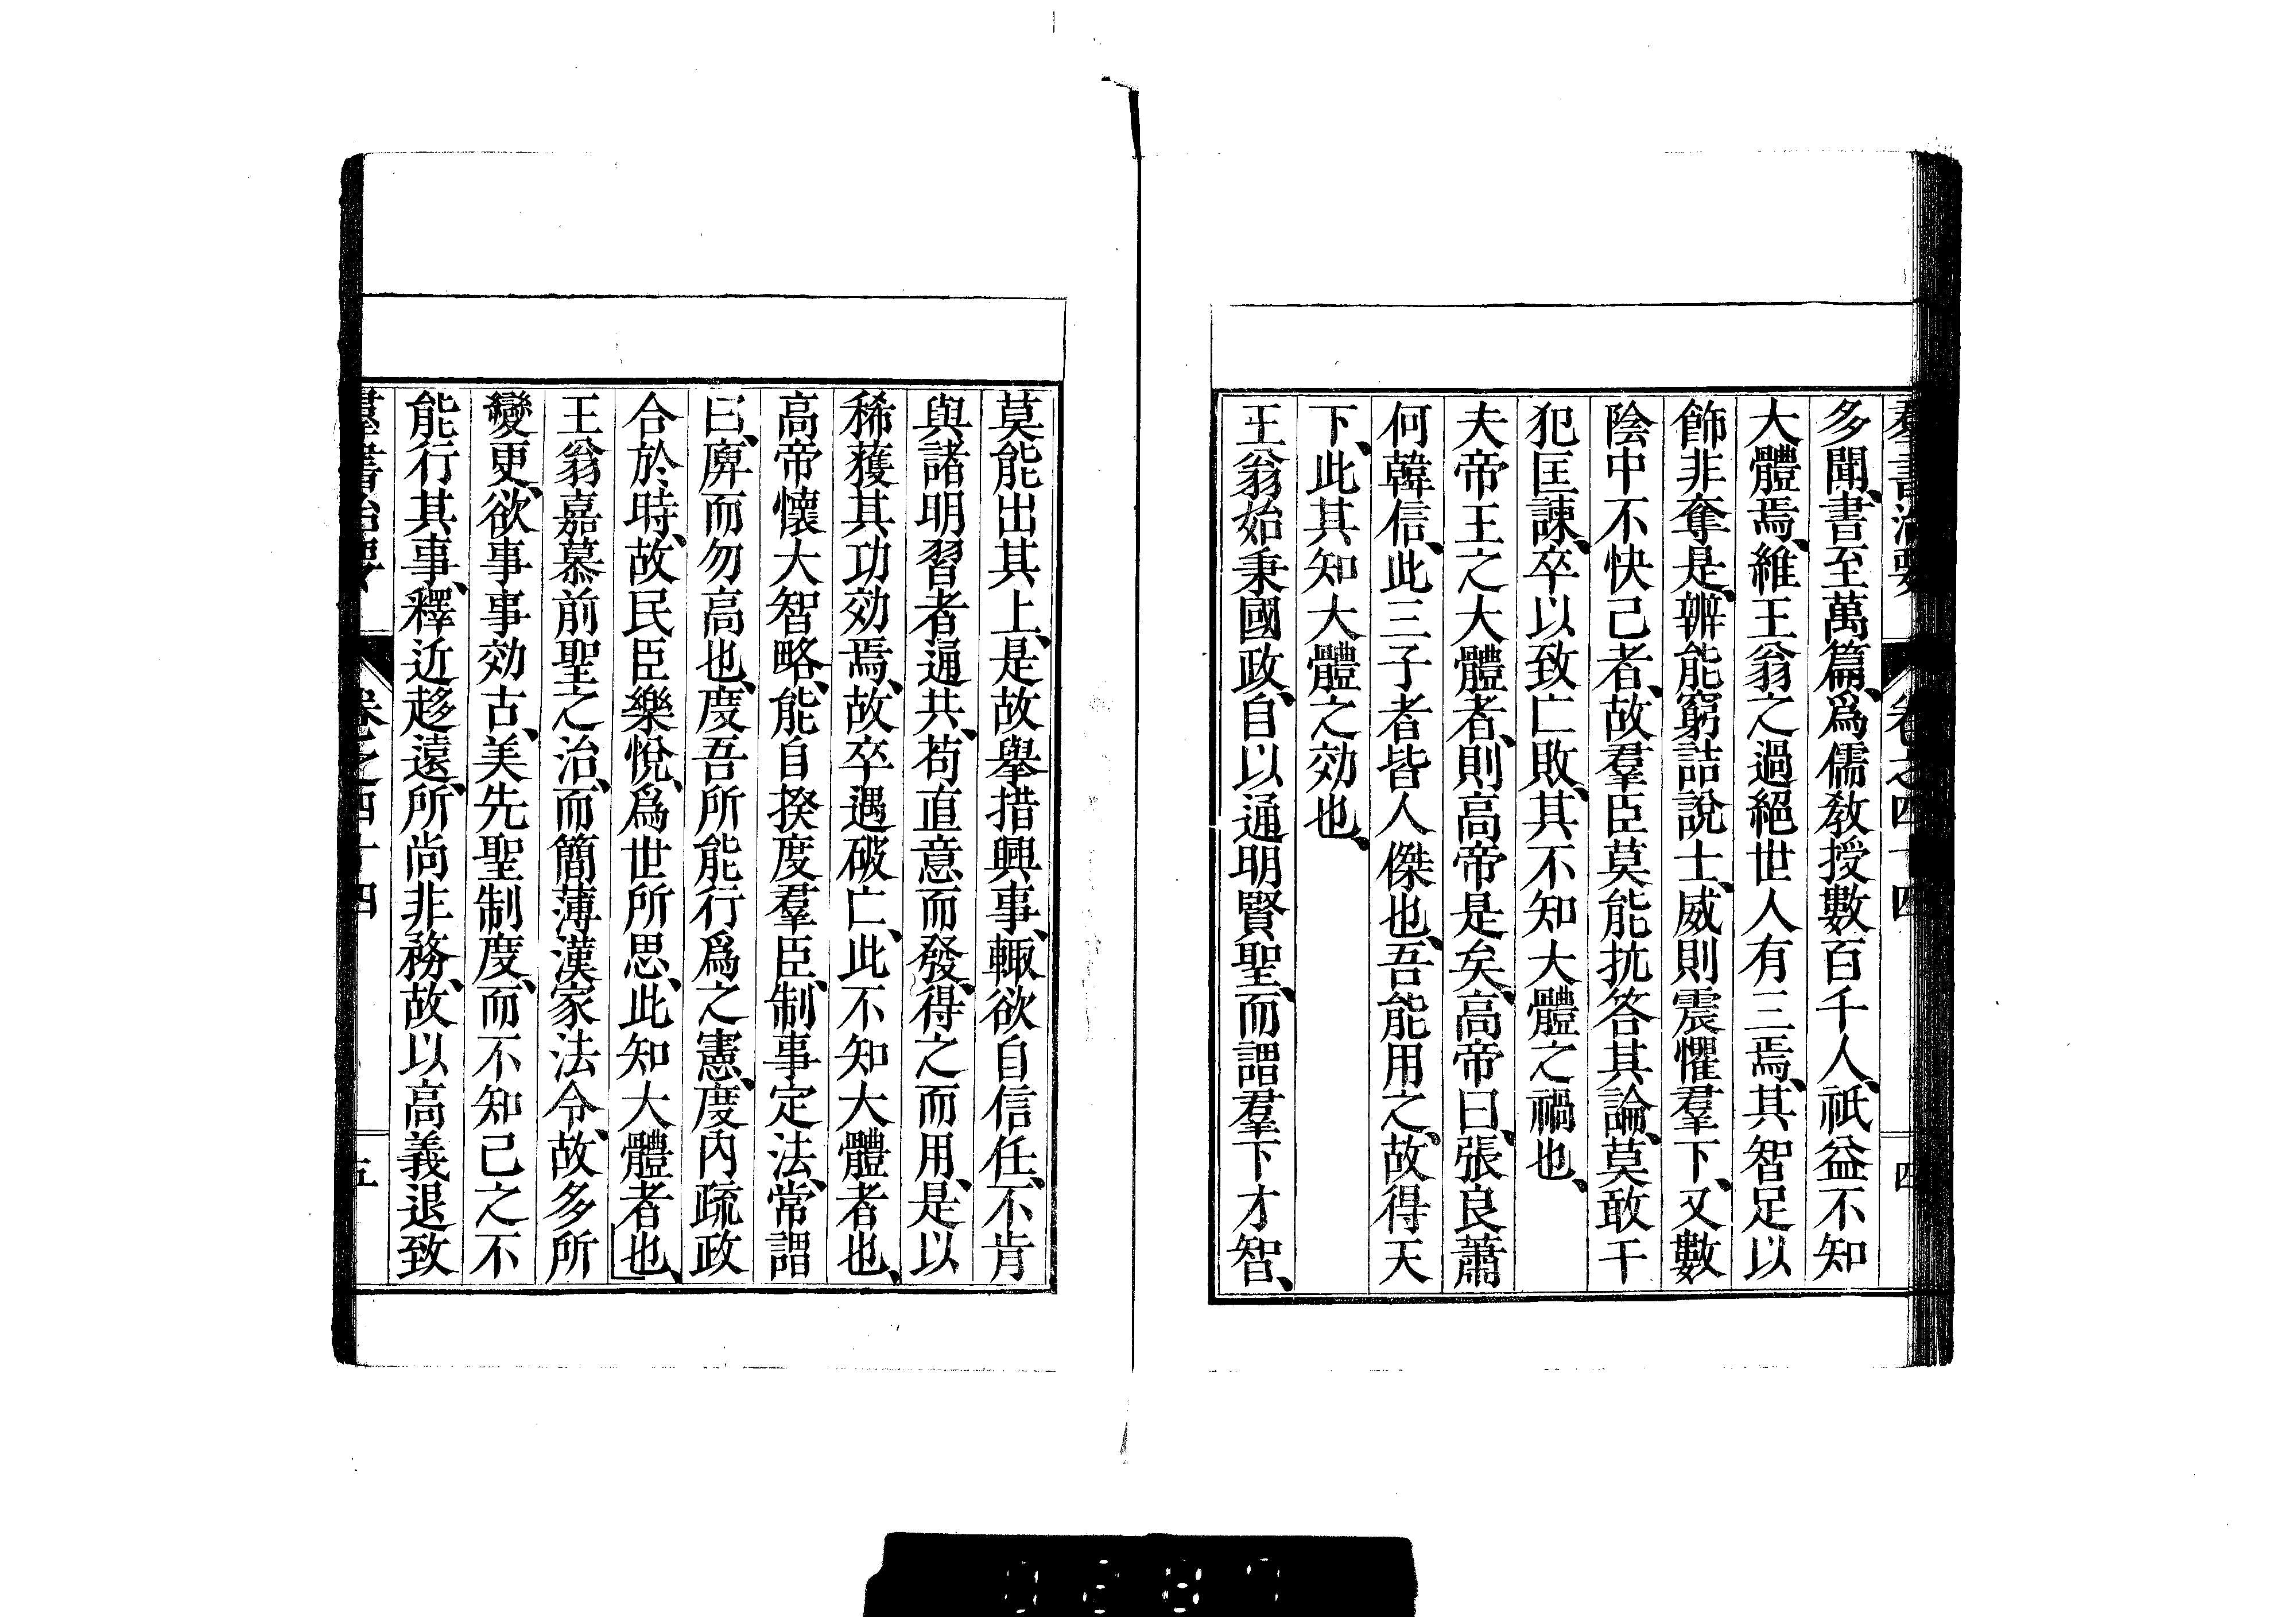 羣書治要 卷之四十四 四
多聞、書至萬篇、爲儒教授數百千人、祇益不知
大體焉、維王翁之過絕世人有三焉、其智足以
飾非奪是、辨能窮詰說士、威則震懼羣下、又數
陰中不快己者、故羣臣莫能抗答其論、莫敢干
犯匡諫、卒以致亡敗、其不知大體之禍也、
夫帝王之大體者、則高帝是矣、高帝曰、張良蕭
何韓信、此三子者皆人傑也、吾能用之、故得天
下、此其知大體之効也、
王翁始秉國政、自以通明賢聖、而謂羣下才智、
莫能出其上、是故舉措興事、輒欲自信任、不肯
與諸明習者通共、苟直意而發、得之而用、是以
稀獲其功効焉、故卒遇破亡、此不知大體者也、
高帝懷大智略、能自揆度羣臣、制事定法、常謂
曰、庳而勿高也、度吾所能行爲之憲、度內疏政
合於時、故民臣樂悅、爲世所思、此知大體者也、
王翁嘉慕前聖之治、而簡薄漢家法令、故多所
變更、欲事事効古、美先聖制度、而不知己之不
能行其事、釋近趍遠、所尚非務、故以高義退致
羣書治要 卷之四十四 五